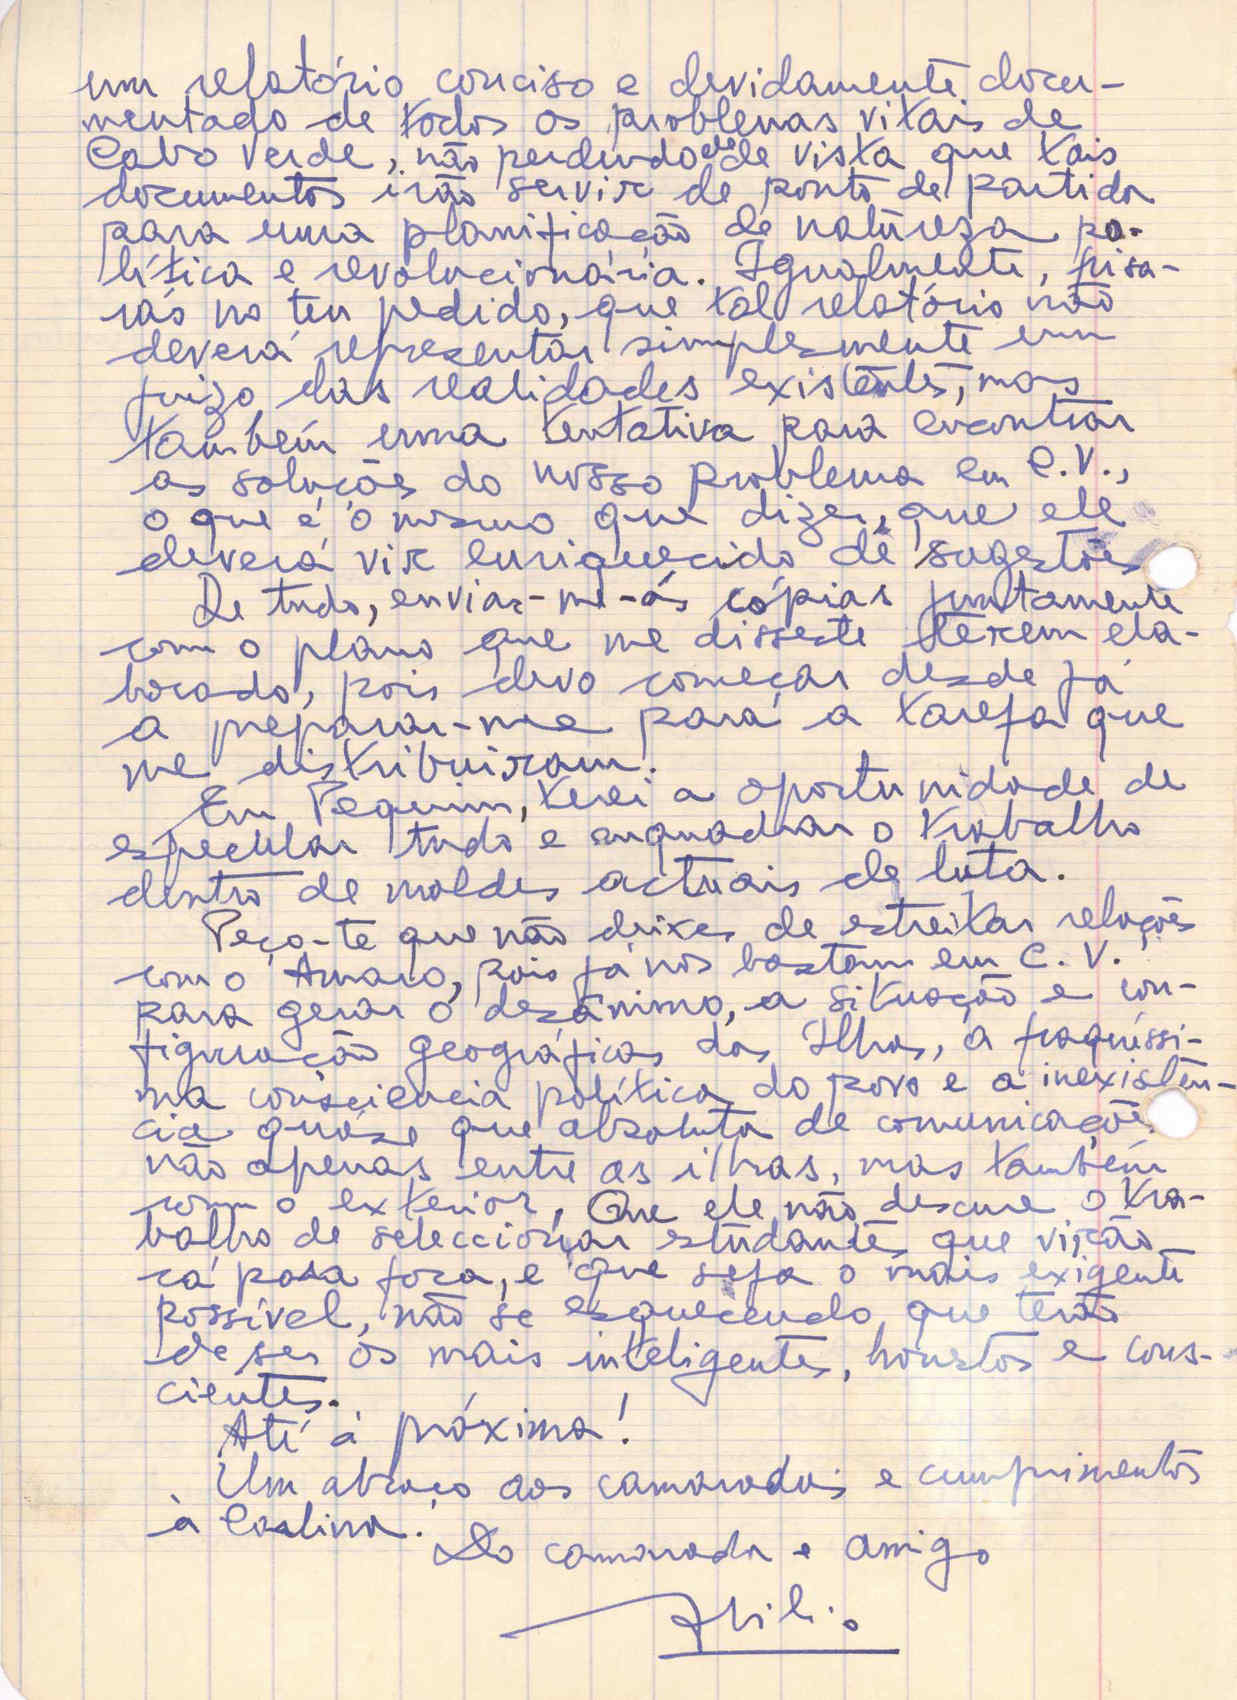 um relatório conciso e devidamente docu-
mentado de todos os problemas vitais de
Cabo Verde, não perdendo de vista que tais
documentos irão servir de ponto de partida
para uma planificação de natureza po-
lítica e revolucionária. Igualmente, frisa-
rás no teu pedido, que tal relatório não
deverá representar simplesmente um
juizo das realidades existentes, mas
também uma tentativa para encontrar
as soluções do nosso problema em C.V.,
o que é o mesmo que dizer, que ele
deverá vir enriquecido de sugestões
De tudo, enviar-me-ás cópias juntamente
com o plano que me disseste terem ela-
borado, pois devo começar desde já
a preparar-me para a tarefa que
me distribuiram.
Em Pequim, terei a oportunidade de
especular tudo e enquadrar o trabalho
dentro de moldes actuais de luta.
Peço-te que não deixes de estreitar relações
com o Amaro, pois já nos bastam em C.V.
para gerar o desânimo, a situação e con-
figuração geográficas das Ilhas, a fraquíssi-
ma consciência política do povo e a inexistên-
cia quáse que absoluta de comunicações
não apenas entre as ilhas, mas também
com o exterior. Que ele não descure o tra-
balho de seleccionar estudantes que virão
cá para fora, e que seja o mais exigente
possível, não se esquecendo que terão
de ser os mais inteligentes, honestos e cons-
cientes.
Até à próxima!
Um abraço aos camaradas e cumprimentos
à Carlina.
Do camarada e amigo